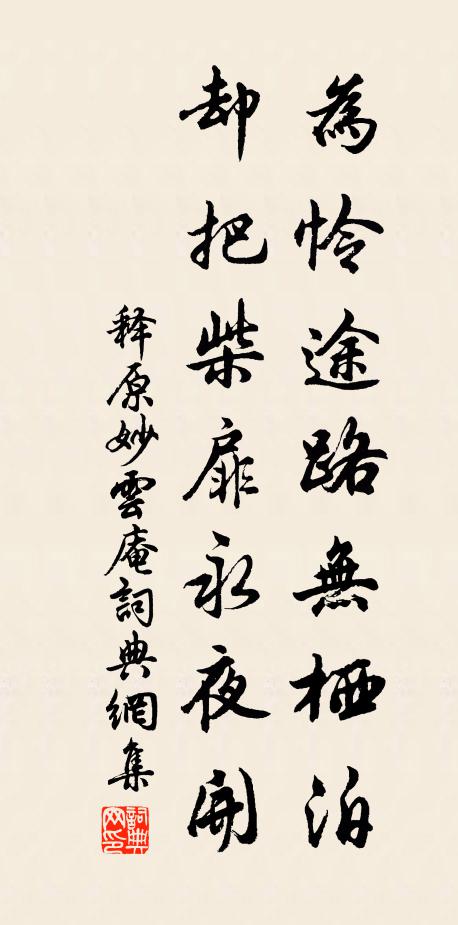 為怜途路無栖泊
却把柴扉永夜開
释原妙雲庵詞典網集
詞典网印